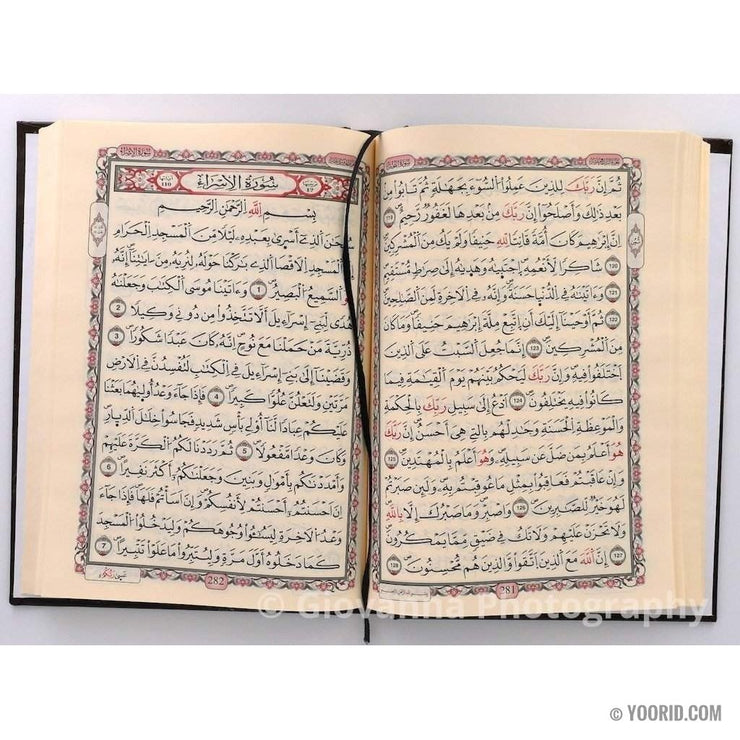 ثُمَّ إِنَّ رَبَّكَ لِلَّذِينَ عَمِلُوا۟ ٱلسُّوٓءَ بِجَهَٰلَةٍ ثُمَّ تَابُوا۟ مِنۢ
بَعْدِ ذَٰلِكَ وَأَصْلَحُوٓا۟ إِنَّ رَبَّكَ مِنۢ بَعْدِهَا لَغَفُورٌ رَّحِيمٌ 119
إِنَّ إِبْرَٰهِيمَ كَانَ أُمَّةً قَانِتًا لِّلَّهِ حَنِيفًا وَلَمْ يَكُ مِنَ ٱلْمُشْرِكِينَ
120 شَاكِرًا لِّأَنْعُمِهِ ٱجْتَبَىٰهُ وَهَدَىٰهُ إِلَىٰ صِرَٰطٍ مُّسْتَقِيمٍ
121 وَءَاتَيْنَٰهُ فِى ٱلدُّنْيَا حَسَنَةً وَإِنَّهُۥ فِى ٱلْءَاخِرَةِ لَمِنَ ٱلصَّٰلِحِينَ
122 ثُمَّ أَوْحَيْنَآ إِلَيْكَ أَنِ ٱتَّبِعْ مِلَّةَ إِبْرَٰهِيمَ حَنِيفًا وَمَا كَانَ
مِنَ ٱلْمُشْرِكِينَ 123 إِنَّمَا جُعِلَ ٱلسَّبْتُ عَلَى ٱلَّذِينَ
ٱخْتَلَفُوا۟ فِيهِ وَإِنَّ رَبَّكَ لَيَحْكُمُ بَيْنَهُمْ يَوْمَ ٱلْقِيَٰمَةِ فِيمَا
كَانُوا۟ فِيهِ يَخْتَلِفُونَ 124 ٱدْعُ إِلَىٰ سَبِيلِ رَبِّكَ بِٱلْحِكْمَةِ
وَٱلْمَوْعِظَةِ ٱلْحَسَنَةِ وَجَٰدِلْهُم بِٱلَّتِى هِىَ أَحْسَنُ إِنَّ رَبَّكَ
هُوَ أَعْلَمُ بِمَن ضَلَّ عَن سَبِيلِهِۦ وَهُوَ أَعْلَمُ بِٱلْمُهْتَدِينَ 125
وَإِنْ عَاقَبْتُمْ فَعَاقِبُوا۟ بِمِثْلِ مَا عُوقِبْتُم بِهِۦ وَلَئِن صَبَرْتُمْ
لَهُوَ خَيْرٌ لِّلصَّٰبِرِينَ 126 وَٱصْبِرْ وَمَا صَبْرُكَ إِلَّا بِٱللَّهِ
وَلَا تَحْزَنْ عَلَيْهِمْ وَلَا تَكُ فِى ضَيْقٍ مِّمَّا يَمْكُرُونَ
127 إِنَّ ٱللَّهَ مَعَ ٱلَّذِينَ ٱتَّقَوا۟ وَّٱلَّذِينَ هُم مُّحْسِنُونَ 128
281
سُورَةُ ٱلْإِسْرَاءِ
بِسْمِ ٱللَّهِ ٱلرَّحْمَٰنِ ٱلرَّحِيمِ
سُبْحَٰنَ ٱلَّذِىٓ أَسْرَىٰ بِعَبْدِهِۦ لَيْلًا مِّنَ ٱلْمَسْجِدِ ٱلْحَرَامِ
إِلَى ٱلْمَسْجِدِ ٱلْأَقْصَا ٱلَّذِى بَٰرَكْنَا حَوْلَهُۥ لِنُرِيَهُۥ مِنْ ءَايَٰتِنَآ إِنَّهُۥ
هُوَ ٱلسَّمِيعُ ٱلْبَصِيرُ 1 وَءَاتَيْنَا مُوسَى ٱلْكِتَٰبَ وَجَعَلْنَٰهُ
هُدًى لِّبَنِىٓ إِسْرَٰٓءِيلَ أَلَّا تَتَّخِذُوا۟ مِن دُونِى وَكِيلًا 2
ذُرِّيَّةَ مَنْ حَمَلْنَا مَعَ نُوحٍ إِنَّهُۥ كَانَ عَبْدًا شَكُورًا 3
وَقَضَيْنَآ إِلَىٰ بَنِىٓ إِسْرَٰٓءِيلَ فِى ٱلْكِتَٰبِ لَتُفْسِدُنَّ فِى ٱلْأَرْضِ
مَرَّتَيْنِ وَلَتَعْلُنَّ عُلُوًّا كَبِيرًا 4 فَإِذَا جَآءَ وَعْدُ أُولَىٰهُمَا بَعَثْنَا
عَلَيْكُمْ عِبَادًا لَّنَآ أُو۟لِى بَأْسٍ شَدِيدٍ فَجَاسُوا۟ خِلَٰلَ ٱلدِّيَارِ
وَكَانَ وَعْدًا مَّفْعُولًا 5 ثُمَّ رَدَدْنَا لَكُمُ ٱلْكَرَّةَ عَلَيْهِمْ
وَأَمْدَدْنَٰكُم بِأَمْوَٰلٍ وَبَنِينَ وَجَعَلْنَٰكُمْ أَكْثَرَ نَفِيرًا 6
إِنْ أَحْسَنتُمْ أَحْسَنتُمْ لِأَنفُسِكُمْ وَإِنْ أَسَأْتُمْ فَلَهَا فَإِذَا جَآءَ
وَعْدُ ٱلْءَاخِرَةِ لِيَسُـۥٓـُٔوا۟ وُجُوهَكُمْ وَلِيَدْخُلُوا۟ ٱلْمَسْجِدَ
كَمَا دَخَلُوهُ أَوَّلَ مَرَّةٍ وَلِيُتَبِّرُوا۟ مَا عَلَوْا۟ تَتْبِيرًا 7
282
© Giovanna Photography
© YOORID.COM